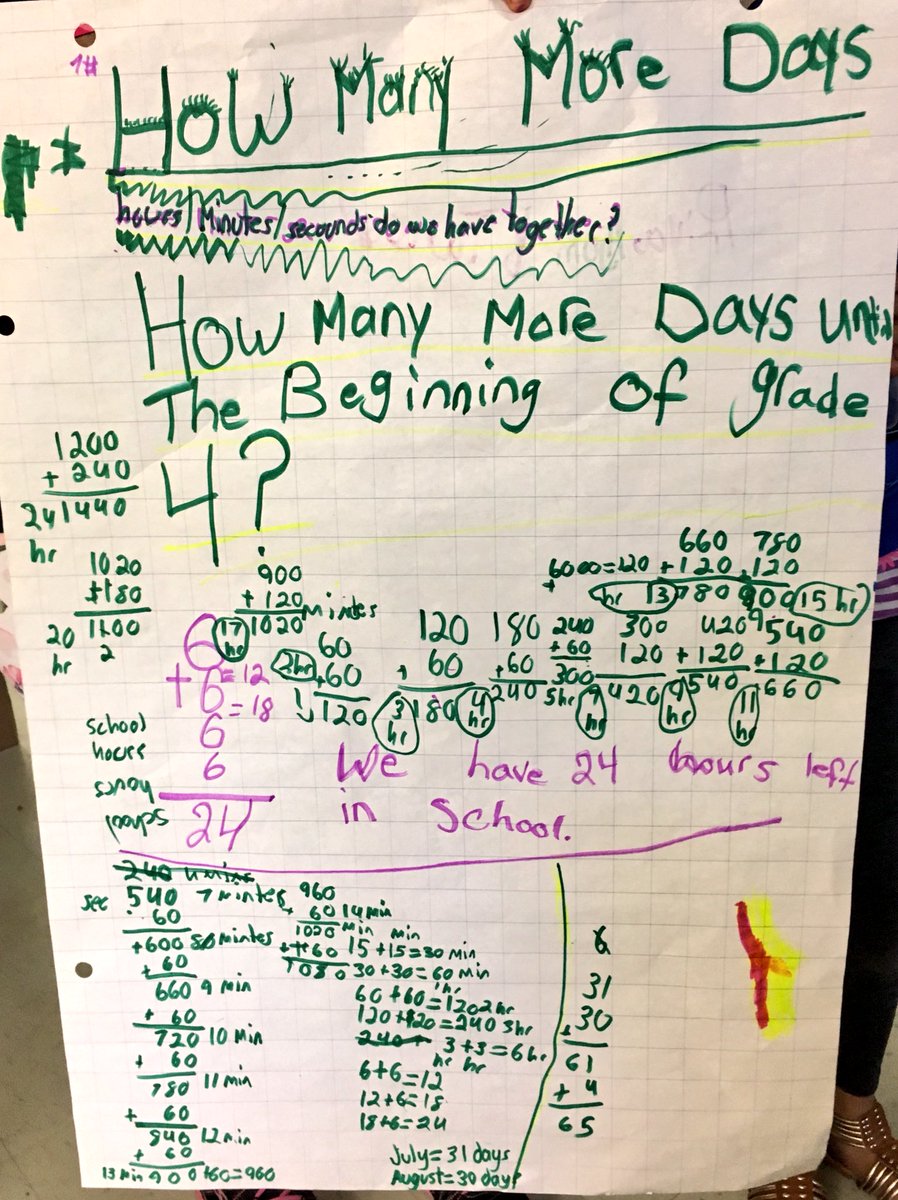 1#
How Many More Days
hours/Minutes/secounds do we have together?
How Many More Days until
The Beginning of grade
4?
1200
+ 240
24 1440
hr
1020
+180
20 1200
hr 2
900
+ 120 mintes
17 hr 1020
6
+6 = 12
6 = 18
6
24
school
hours
2hr
60
+60
120
120
+ 60
3 hr 180
180
+60
4 hr 240
240
+60
300
5hr
300
120
7 hr 420
420
+120
9 hr 540
540
+120
11 hr 660
6000=120
660
+120
hr 13 780
780
120
900 15 hr
We have 24 hours left
in school.
240 mins
sec 540 7 mintes
60
+600 8 mintes
+ 60
660 9 min
+ 60
720 10 min
+ 60
780 11 min
+ 60
840 12 min
+ 60
13 min 900 +60=960
960
+ 60 14 min
1020 min min
+ 60 15+15=30 min
1080 30+30=60 min
1hr
60+60=120 2hr
120+120=240 3hr
240+ 3+3=6 hr
hr hr
6+6=12
12+6=18
18+6=24
July=31 days
August=30 days
6
31
+30
61
+ 4
65